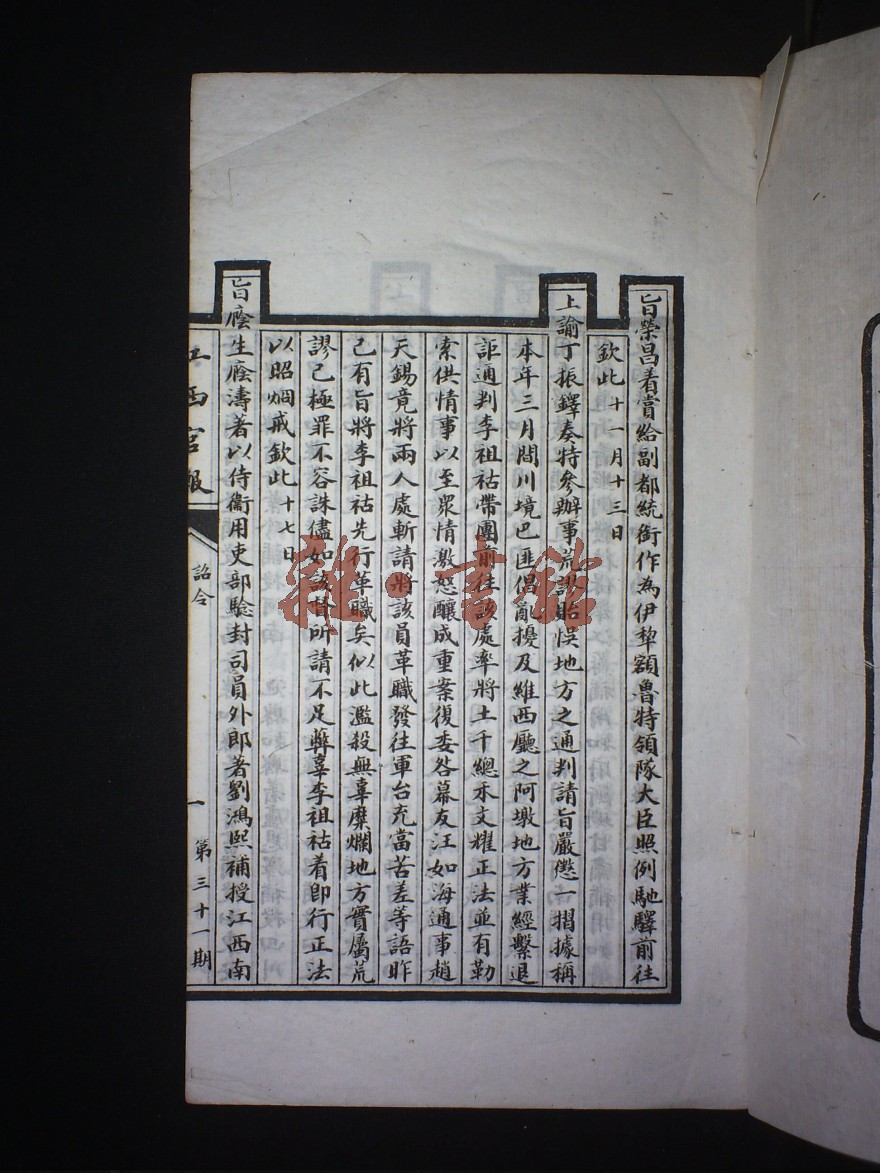 旨榮昌着賞給副都統銜作為伊犂額魯特領隊大臣照例馳驛前往
欽此十一月十三日
上諭丁振鐸奏特參辦事荒謬貽悞地方之通判請旨嚴懲一摺據稱
本年三月間川境巴匪倡亂擾及維西廳之阿墩地方業經擊退
詎通判李祖祜帶團前往該處率將土千總禾文耀正法並有勒
索供情事以至眾情激怒釀成重案復委咎幕友江如海通事趙
天錫竟將兩人處斬請將該員革職發往軍台充當苦差等語昨
已有旨將李祖祜先行革職矣似此濫殺無辜糜爛地方實屬荒
謬已極罪不容誅儘如該督所請不足蔽辜李祖祜着即行正法
以昭烱戒欽此十七日
旨廕生廕濤著以侍衞用吏部驗封司員外郎著劉鴻熙補授江西南
江西官報
詔令
一
第三十一期
雜·書館